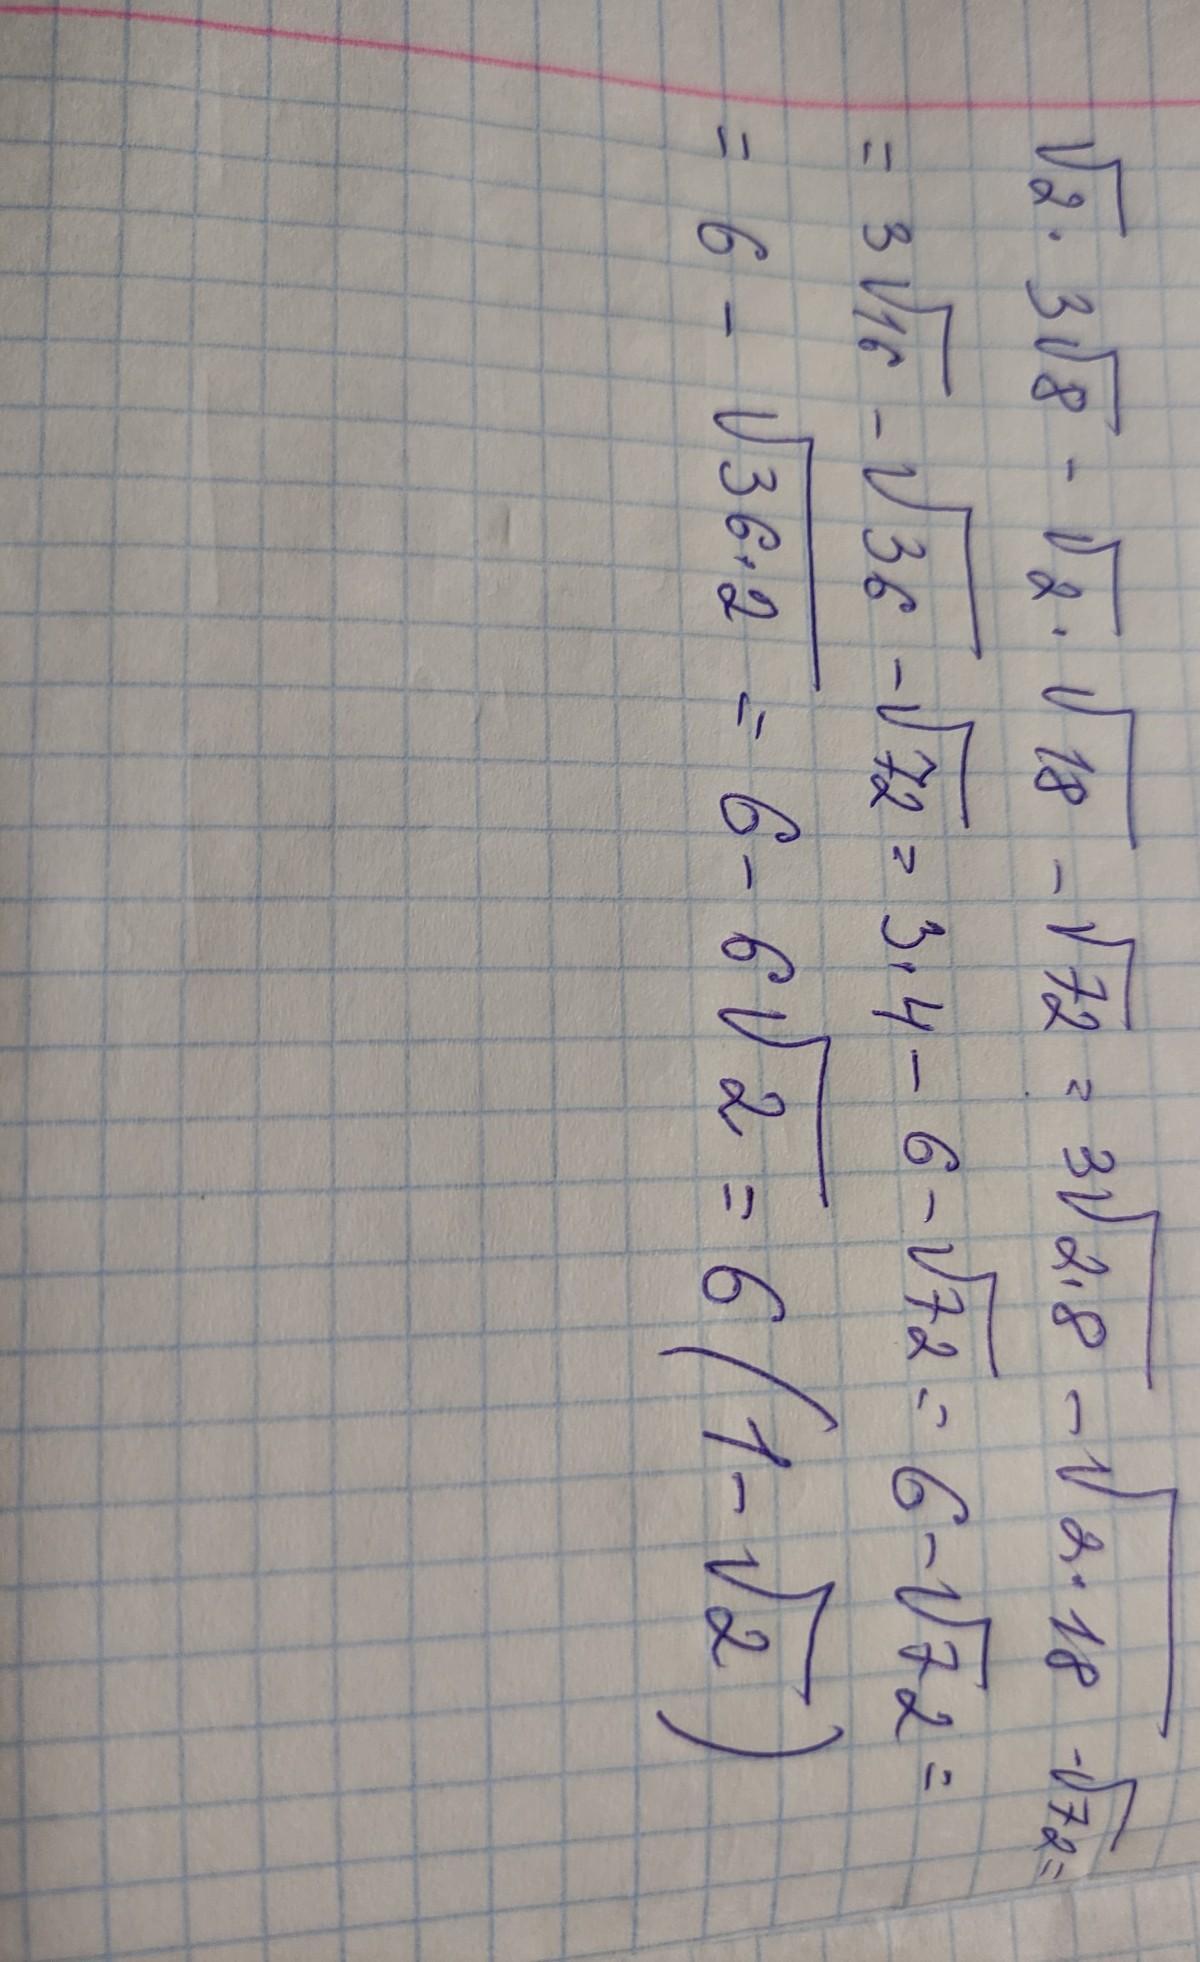 √2 · 3√8 - √2 · √18 - √72 = 3√2·8 - √2·18 - √72 =
= 3√16 - √36 - √72 = 3·4 - 6 - √72 = 6 - √72 =
= 6 - √36·2 = 6 - 6√2 = 6(1 - √2)